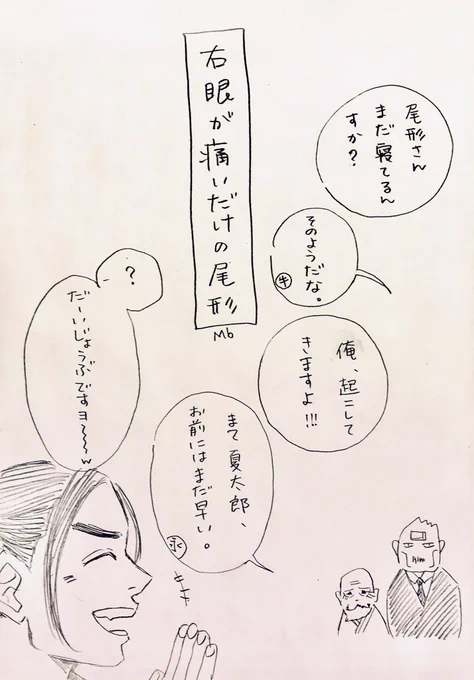 右眼が痛いだけの尾形
M6
尾形さん
まだ寝てるん
すか？
そのようだな。
牛
俺、起こして
きますよ!!!
まて夏太郎、
お前にはまだ早い。
永
キャ
？
だーいじょうぶですヨ〜〜〜w